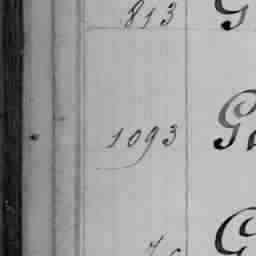 813 G
1093 G
G